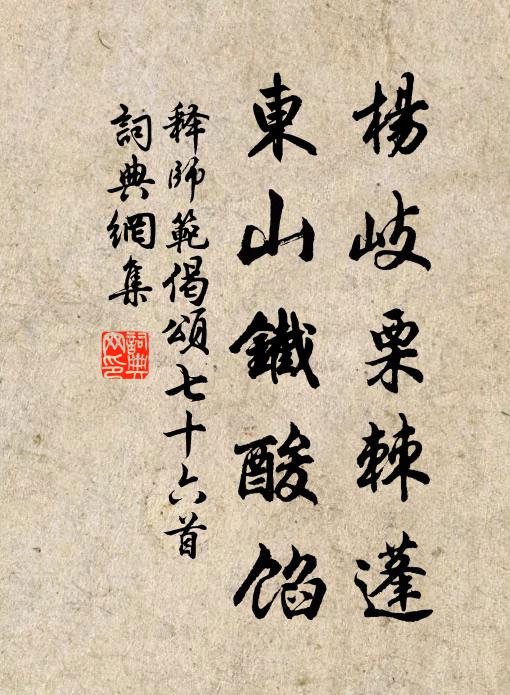 楊岐栗棘蓬
東山鐵酸馅
释師範偈頌七十六首
詞典網集
詞典网印